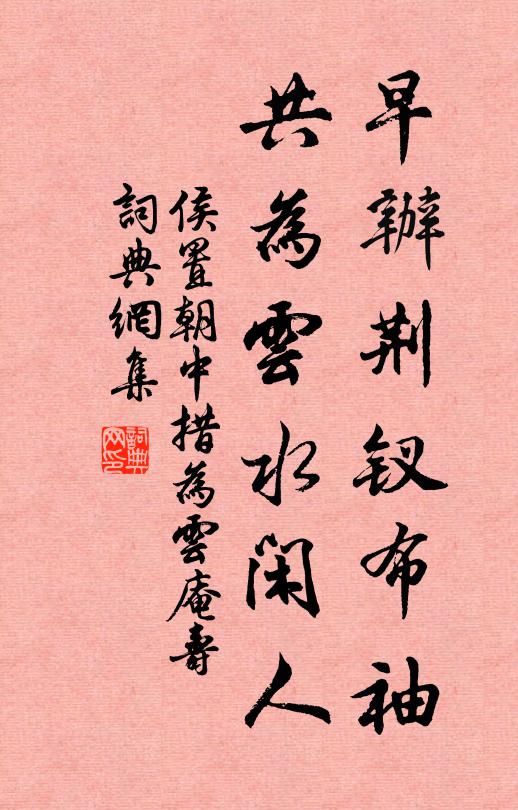 早辦荆釵布袖
共為雲水闲人
侯置朝中措為雲庵壽
詞典網集
詞典
网印